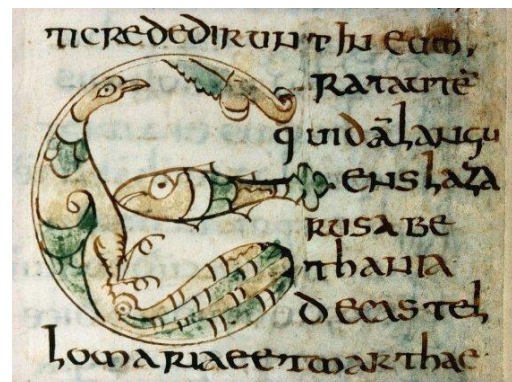 ticrededirunt in eum,
Erat autē
quidā langu
ens laza
rus a be
thania
de castel
lo mariae et marthae